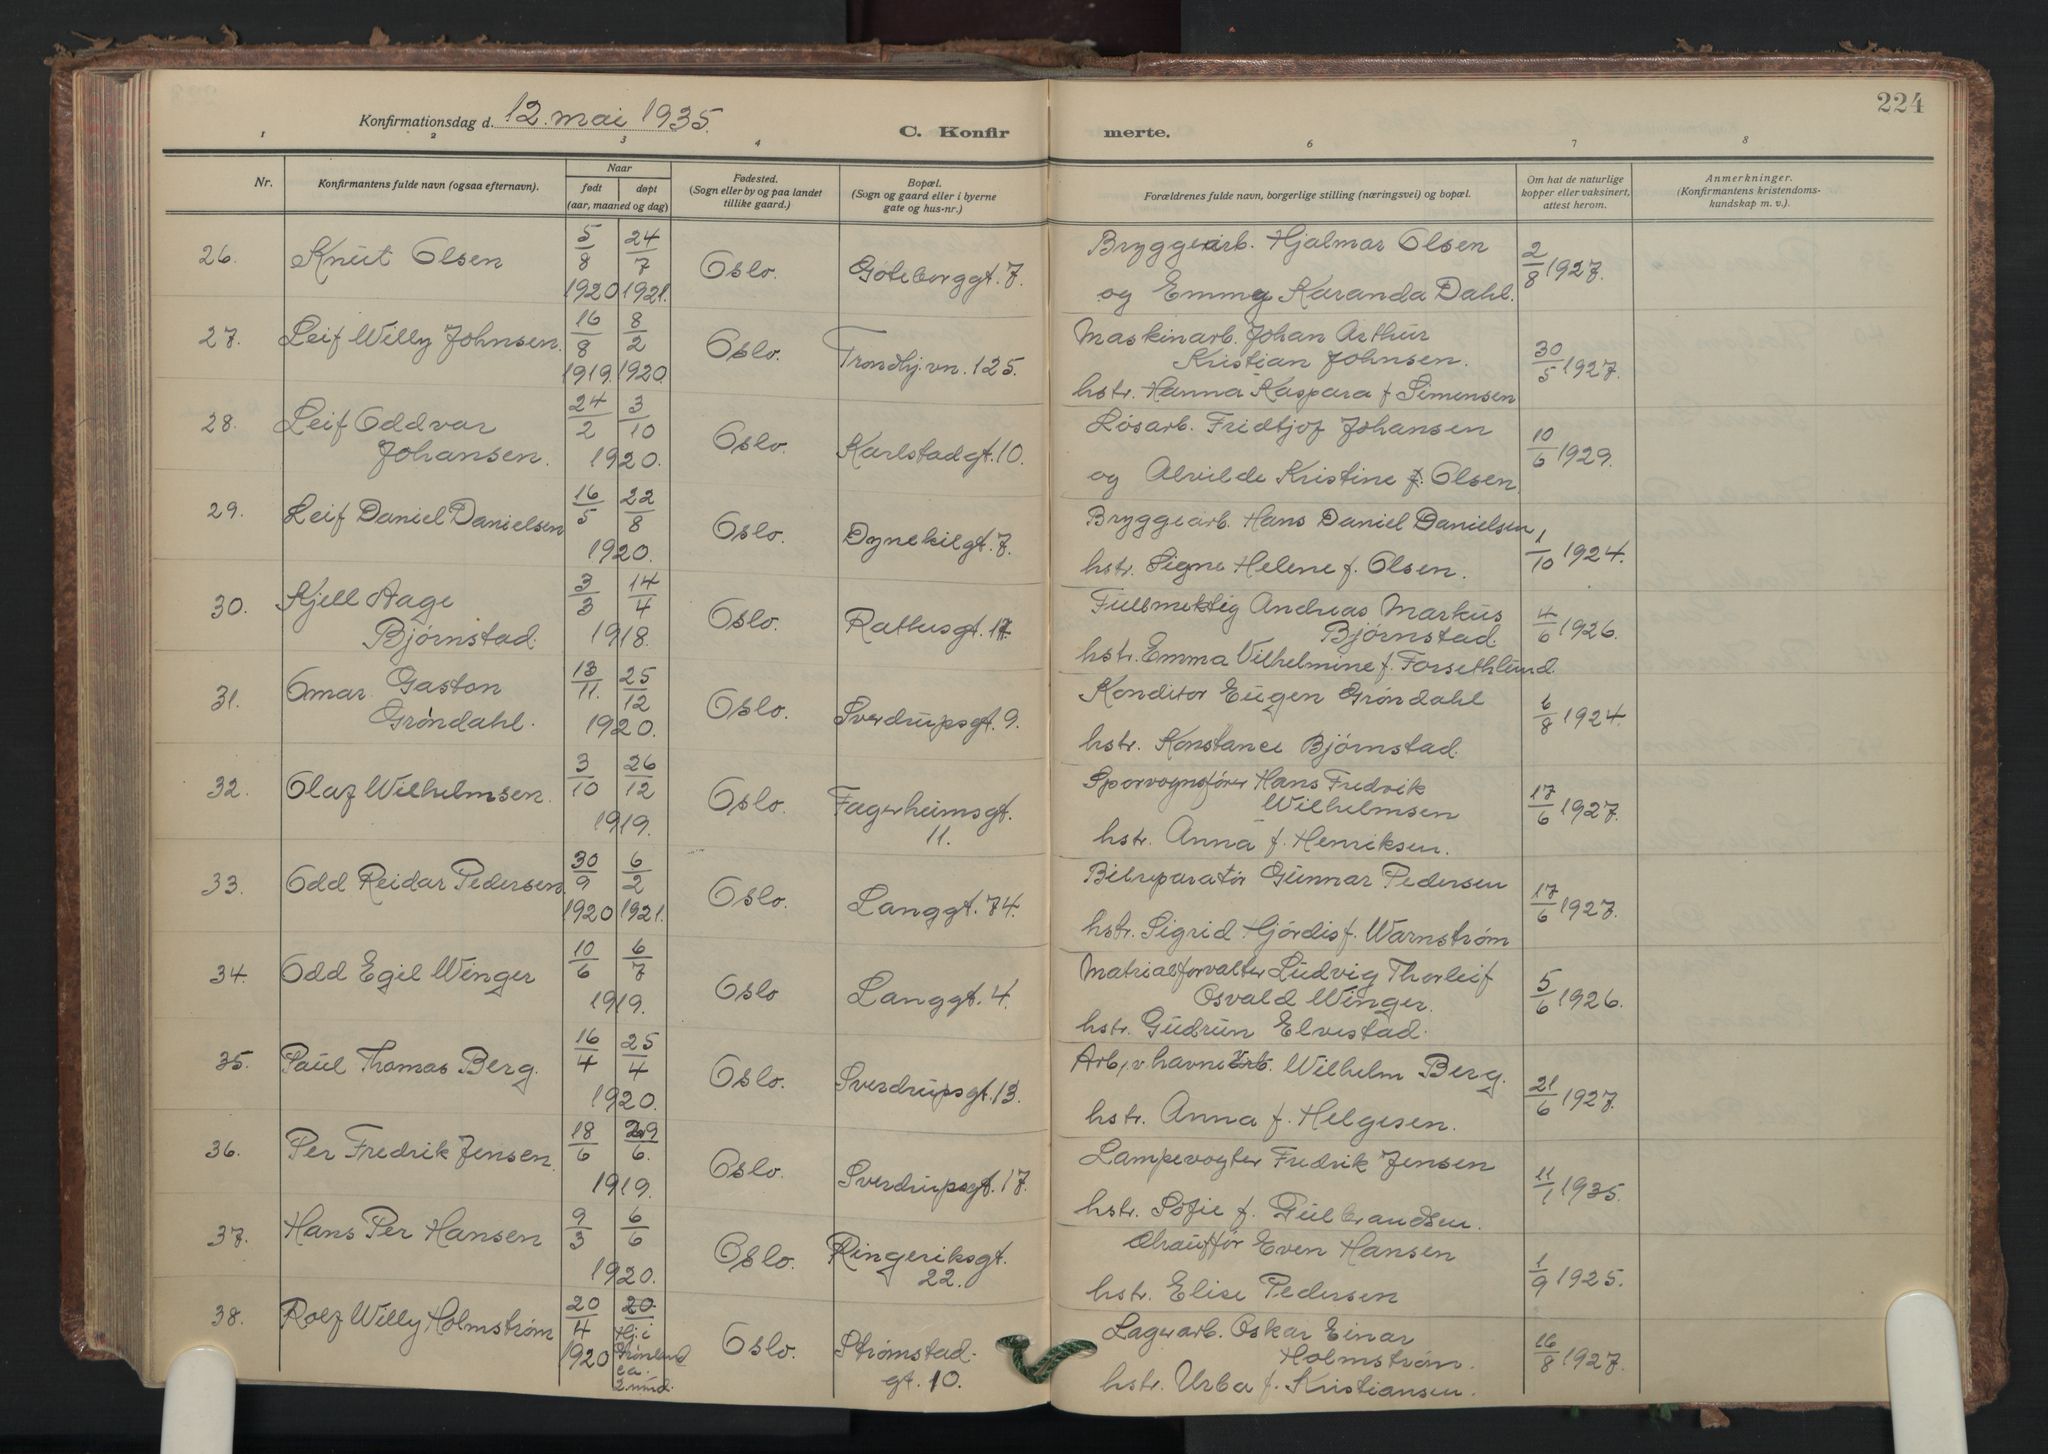 224
Konfirmationsdag d. 12. mai 1935.
C. Konfirmerte.
1 2 3 4 6 7 8
Nr.
Konfirmantens fulde navn (ogsaa efternavn).
Naar
født døpt
(aar, maaned og dag)
Fødested.
(Sogn eller by og paa landet
tillike gaard.)
Bopæl.
(Sogn og gaard eller i byerne
gate og hus-nr.)
Forældrenes fulde navn, borgerlige stilling (næringsvei) og bopæl.
Om hat de naturlige
kopper eller vaksinert,
attest herom.
Anmerkninger.
(Konfirmantens kristendoms-
kundskap m. v.).
26. Knut Olsen 5/8 1920 24/7 1921. Oslo. Göteborggt. 7.
Bryggearb. Hjalmar Olsen
og Emmy Karanda Dahl. 2/8 1927.
27. Leif Willy Johnsen. 16/8 1919. 8/2 1920. Oslo. Trondhj.vn. 125.
Maskinarb. Johan Arthur
Kristian Johnsen.
hstr. Hanna Kaspara f. Simensen 30/5 1927.
28. Leif Oddvar
Johansen. 24/2 3/10 1920. Oslo. Karlstadgt. 10.
Løsarb. Fridtjof Johansen
og Alvilde Kristine f. Olsen. 10/6 1929.
29. Leif Daniel Danielsen 16/5 22/8 1920. Oslo. Dynekilgt. 7.
Bryggearb. Hans Daniel Danielsen
hstr. Signe Helene f. Olsen. 1/10 1924.
30. Kjell Aage
Bjørnstad. 3/3 14/4 1918. Oslo. Rathusgt. 17
Fullmektig Andreas Markus
Bjørnstad.
hstr. Emma Vilhelmine f. Forsethlund. 4/6 1926.
31. Omar Gaston
Grøndahl. 13/11. 25/12 1920. Oslo. Sverdrupsgt. 9.
Konditor Eugen Grøndahl
hstr. Konstance Bjørnstad. 6/8 1924.
32. Olaf Wilhelmsen. 3/10 26/12 1919. Oslo. Fagerheimsgt.
11.
Sporvognsfører Hans Fredrik
Wilhelmsen
hstr. Anna f. Henriksen. 17/6 1927.
33. Odd Reidar Pedersen 30/9 1920 6/2 1921. Oslo. Langgt. 74.
Bilreparatør Gunnar Pedersen
hstr. Sigrid Hjørdis f. Warnstrøm 17/6 1927.
34. Odd Egil Winger 10/6 6/7 1919. Oslo Langgt. 4.
Matrialforvalter Ludvig Thorleif
Osvald Winger.
hstr. Gudrun Elvestad. 5/6 1926.
35. Paul Thomas Berg. 16/4 25/4 1920. Oslo. Sverdrupsgt. 13.
Arb. v. havne Wilhelm Berg.
hstr. Anna f. Helgesen. 21/6 1927.
36. Per Fredrik Jensen. 18/6 29/6. 1919. Oslo. Sverdrupsgt. 17.
Lampevogter Fredrik Jensen
hstr. Sofie f. Gulbrandsen. 11/1 1935.
37. Hans Per Hansen 9/3 6/6 1920. Oslo. Ringeriksgt.
22.
Chauffør Even Hansen
hstr. Elise Pedersen 1/9 1925.
38. Rolf Willy Holmstrøm 20/4 1920 20. Hj. i
Grønland
ca.
2 mnd. Oslo. Strømstad-
gt. 10.
Lagerarb. Oskar Einar
Holmstrøm.
hstr. Urba f. Kristiansen. 16/8 1927.